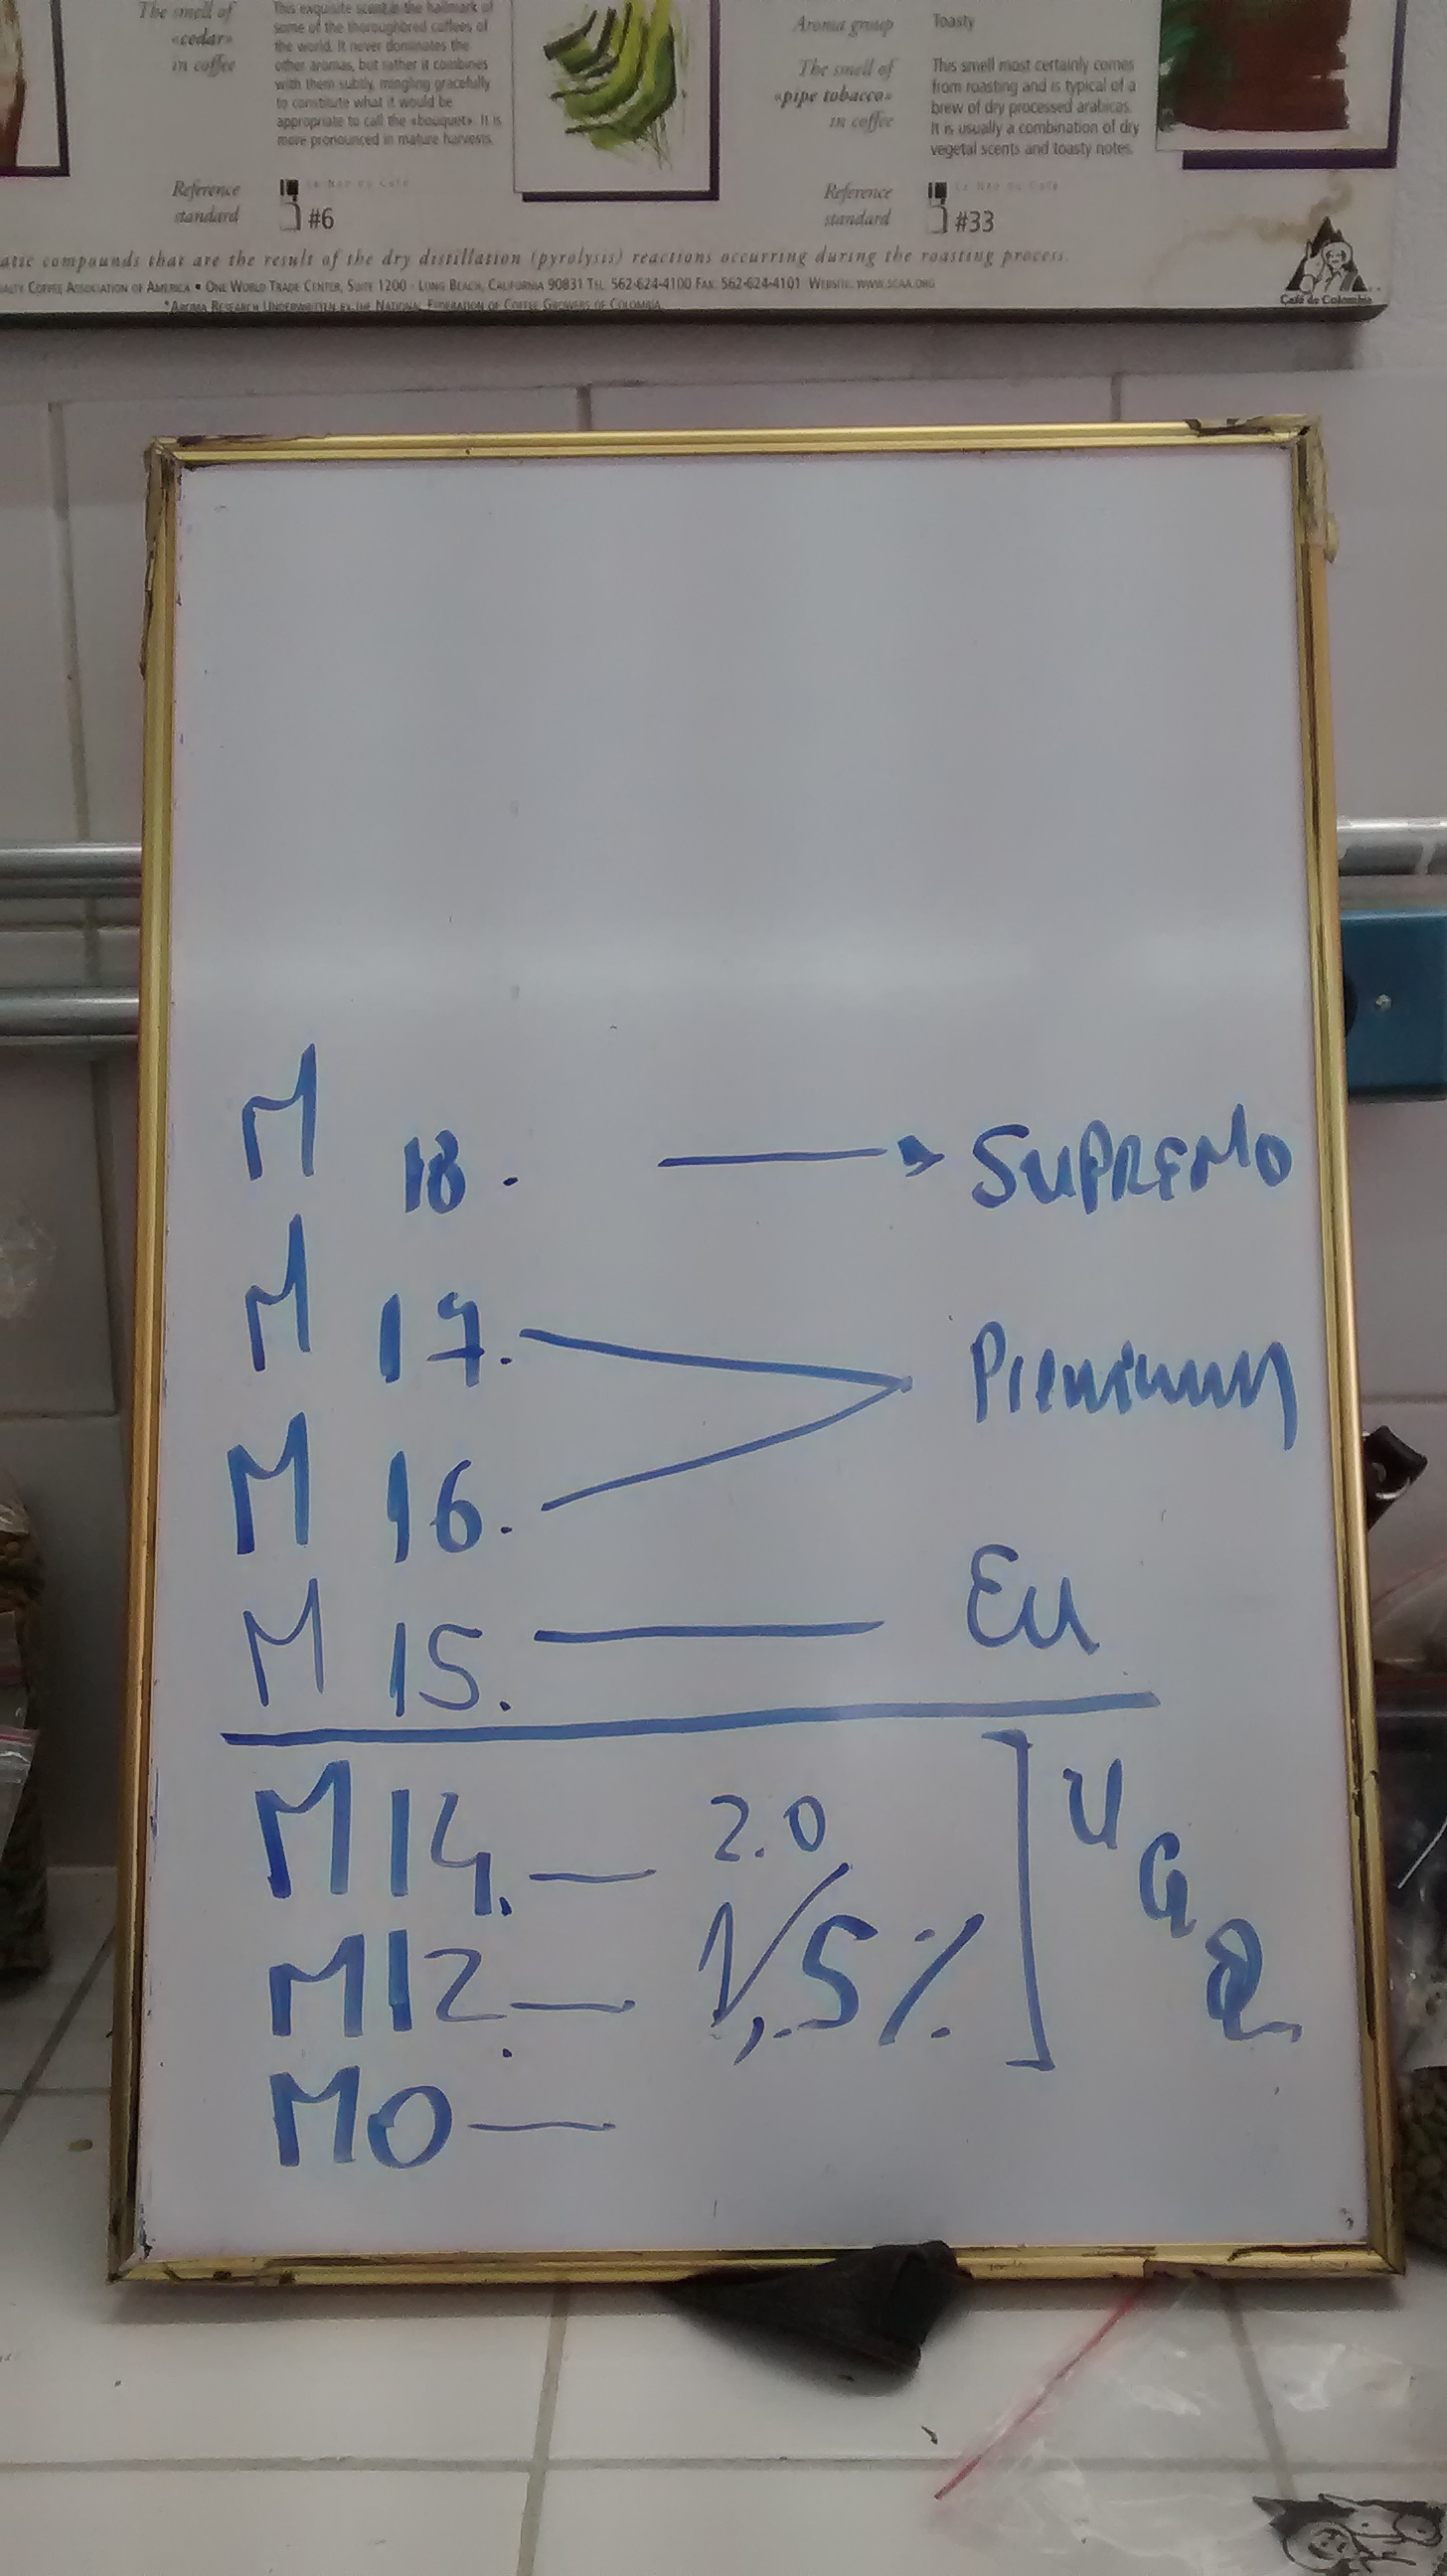 The smell of
«cedar»
in coffee
This exquisite scent is the hallmark of
some of the thoroughbred coffees of
the world. It never dominates the
other aromas, but rather it combines
with them subtly, mingling gracefully
to constitute what it would be
appropriate to call the «bouquet». It is
more pronounced in mature harvests.
Reference
standard
Le Nez du Café
#6
Aroma group
Toasty
The smell of
«pipe tobacco»
in coffee
This smell most certainly comes
from roasting and is typical of a
brew of dry processed arabicas.
It is usually a combination of dry
vegetal scents and toasty notes.
Reference
standard
Le Nez du Café
#33
atic compounds that are the result of the dry distillation (pyrolysis) reactions occurring during the roasting process.
ALTY COFFEE ASSOCIATION OF AMERICA • ONE WORLD TRADE CENTER, SUITE 1200 · LONG BEACH, CALIFORNIA 90831 TEL. 562-624-4100 FAX. 562-624-4101 WEBSITE: WWW.SCAA.ORG
*AROMA RESEARCH UNDERWRITTEN BY THE NATIONAL FEDERATION OF COFFEE GROWERS OF COLOMBIA
Café de Colombia
M 18. → SUPREMO
M 17.
Premium
M 16.
M 15. — EU
M14. — 2.0
M12. — 1,5 %
UGQ
M0 —